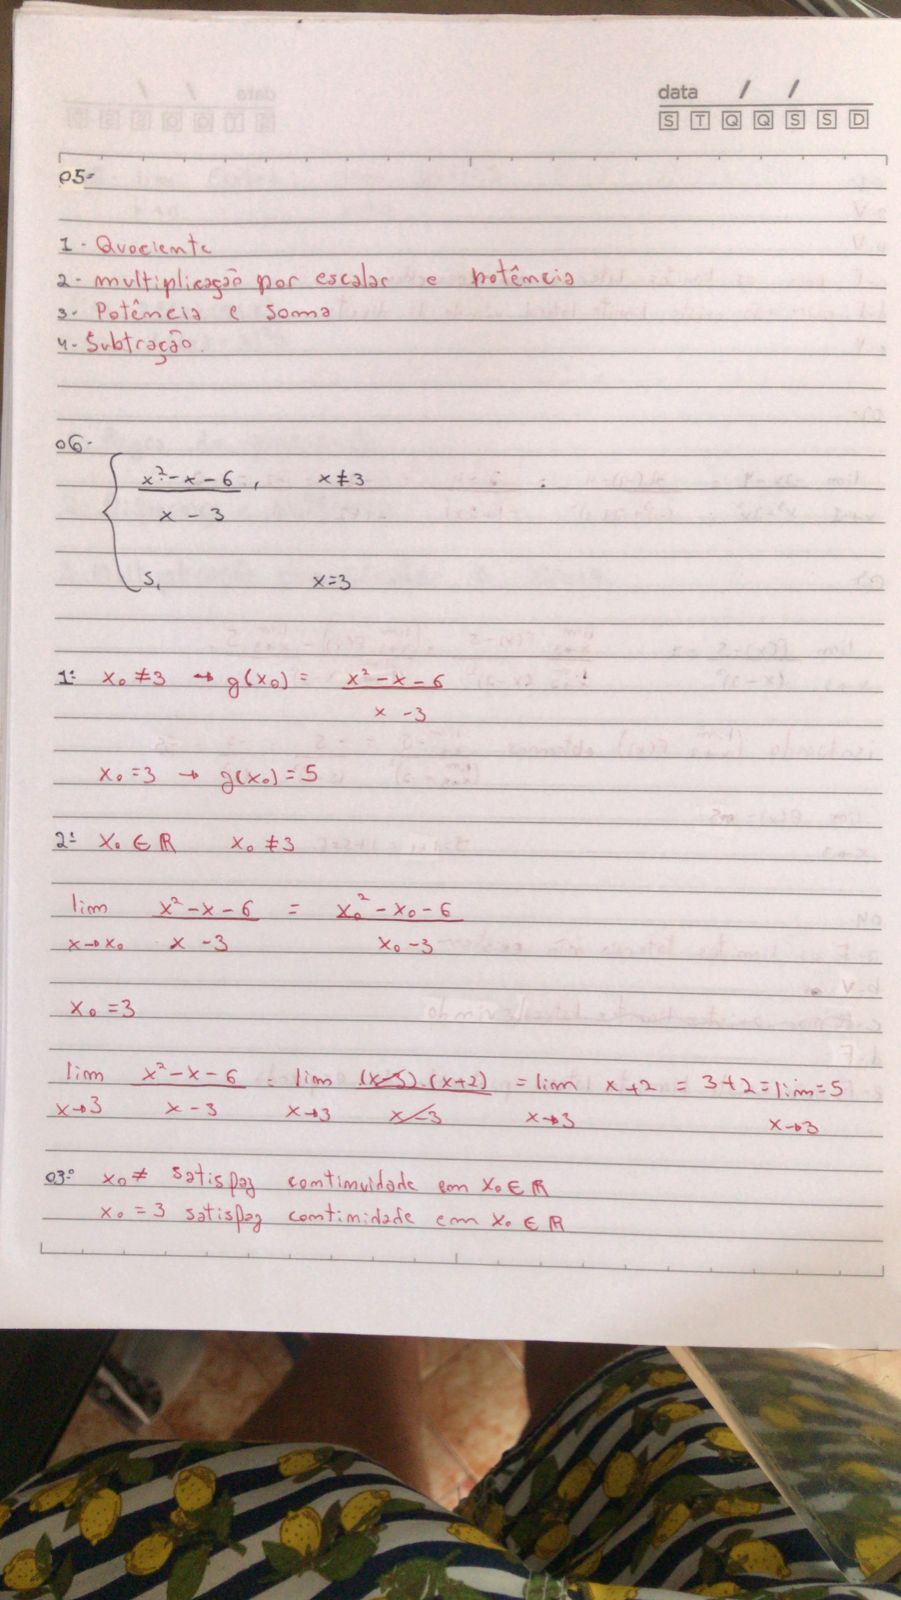 data / /
S T Q Q S S D
05-
1- Quociente
2- multiplicação por escalar e potência
3- Potência e Soma
4- Subtração.
06-
x² - x - 6 , x ≠ 3 :
x - 3
5, x = 3
1: x₀ ≠ 3 → g(x₀) = x² - x - 6
x - 3
x₀ = 3 → g(x₀) = 5
2: x₀ ∈ ℝ x₀ ≠ 3
lim x² - x - 6 = x₀² - x₀ - 6
x→x₀ x - 3 x₀ - 3
x₀ = 3
lim x² - x - 6 = lim (x-3).(x+2) = lim x+2 = 3+2 = lim = 5
x→3 x - 3 x→3 x-3 x→3 x→3
03: x₀ ≠ satisfaz continuidade em x₀ ∈ ℝ
x₀ = 3 satisfaz contimidade em x₀ ∈ ℝ